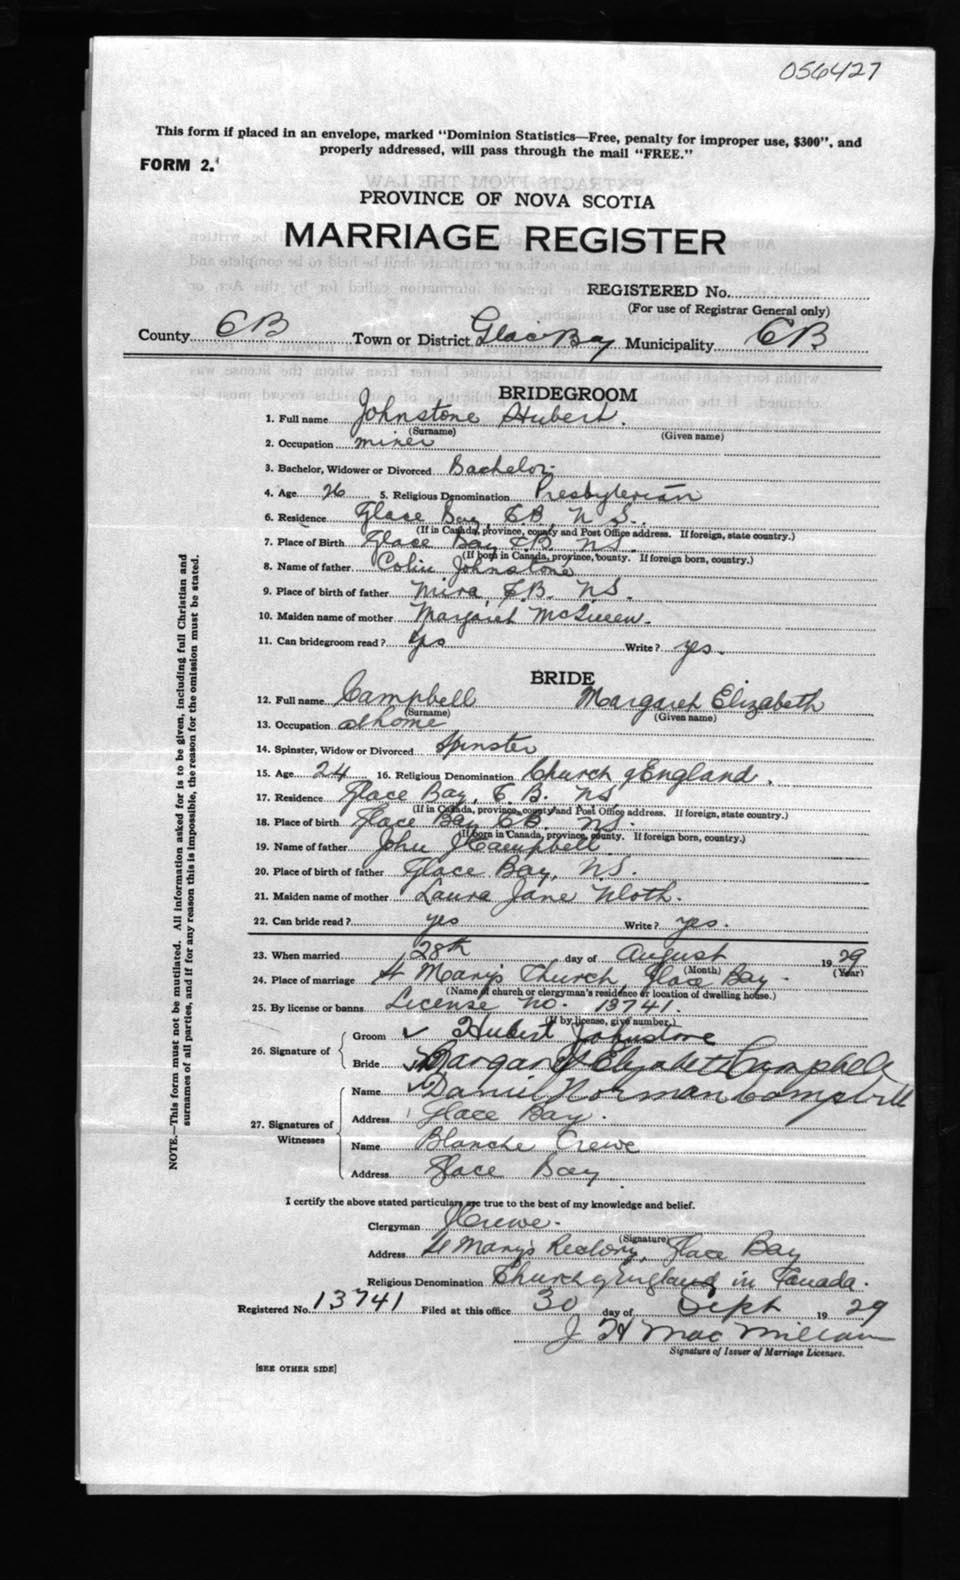 056427
This form if placed in an envelope, marked "Dominion Statistics—Free, penalty for improper use, $300", and
properly addressed, will pass through the mail "FREE."
FORM 2.
PROVINCE OF NOVA SCOTIA
MARRIAGE REGISTER
REGISTERED No.
(For use of Registrar General only)
County CB Town or District Glace Bay Municipality CB
BRIDEGROOM
1. Full name Johnstone Hubert.
(Surname) (Given name)
2. Occupation miner
3. Bachelor, Widower or Divorced Bachelor
4. Age 26 5. Religious Denomination Presbyterian
6. Residence Glace Bay C.B. N.S.
(If in Canada, province, county and Post Office address. If foreign, state country.)
7. Place of Birth Glace Bay C.B. N.S.
(If born in Canada, province, county. If foreign born, country.)
8. Name of father Colin Johnstone
9. Place of birth of father Mira, C.B. N.S.
10. Maiden name of mother Margaret McQueen.
11. Can bridegroom read? Yes Write? yes.
BRIDE
12. Full name Campbell Margaret Elizabeth
(Surname) (Given name)
13. Occupation at home
14. Spinster, Widow or Divorced Spinster
15. Age 24 16. Religious Denomination Church of England.
17. Residence Glace Bay, C.B. N.S.
(If in Canada, province, county and Post Office address. If foreign, state country.)
18. Place of birth Glace Bay C.B. N.S.
(If born in Canada, province, county. If foreign born, country.)
19. Name of father John J Campbell
20. Place of birth of father Glace Bay, N.S.
21. Maiden name of mother Laura Jane
22. Can bride read? yes Write? yes.
23. When married 28th day of August 1929
(Month) (Year)
24. Place of marriage St Mary's Church, Glace Bay
(Name of church or clergyman's residence or location of dwelling house.)
25. By license or banns License No. 13741.
(If by license, give number.)
26. Signature of
Groom Hubert Johnstone
Bride Margaret Elizabeth Campbell
27. Signatures of Witnesses
Name Daniel Norman Campbell
Address Glace Bay.
Name Blanche Crewe
Address Glace Bay
I certify the above stated particulars are true to the best of my knowledge and belief.
Clergyman J Crewe.
(Signature)
Address St Mary's Rectory, Glace Bay
Religious Denomination Church of England in Canada.
Registered No. 13741 Filed at this office 30 day of Sept 1929
J H MacMillan
Signature of Issuer of Marriage Licenses.
[SEE OTHER SIDE]
NOTE.—This form must not be mutilated. All information asked for is to be given, including full Christian and
surnames of all parties, and if for any reason this is impossible, the reason for the omission must be stated.